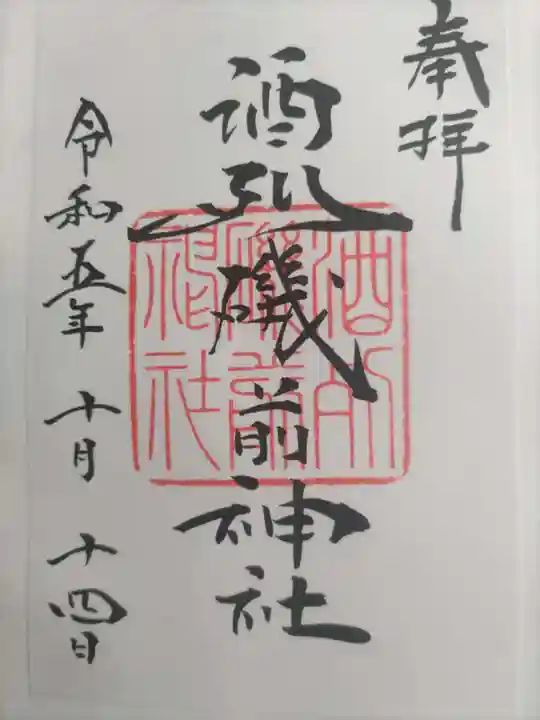 奉拝
酒列磯前神社
令和五年 十月 十四日
酒列
磯前
神社